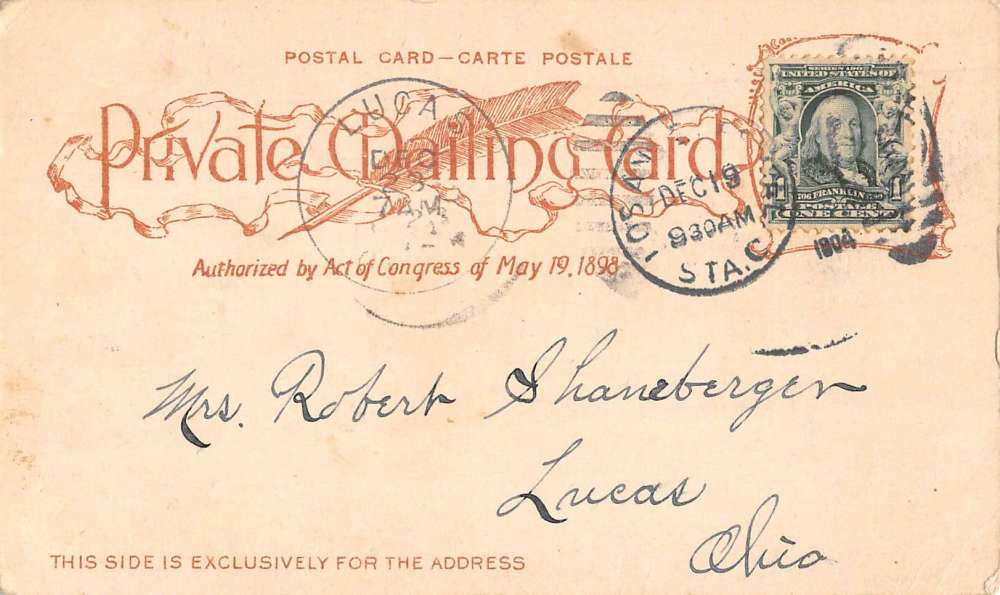 POSTAL CARD—CARTE POSTALE
Private Mailing Card
Authorized by Act of Congress of May 19, 1898
LUCA
DEC
7 AM
LOS
DEC 19
9 30 AM
STA. C
SERIES 1902
UNITED STATES OF
AMERICA
1706 FRANKLIN 1790
1 POSTAGE 1
ONE CENT
Mrs. Robert Shaneberger
Lucas
Ohio
THIS SIDE IS EXCLUSIVELY FOR THE ADDRESS